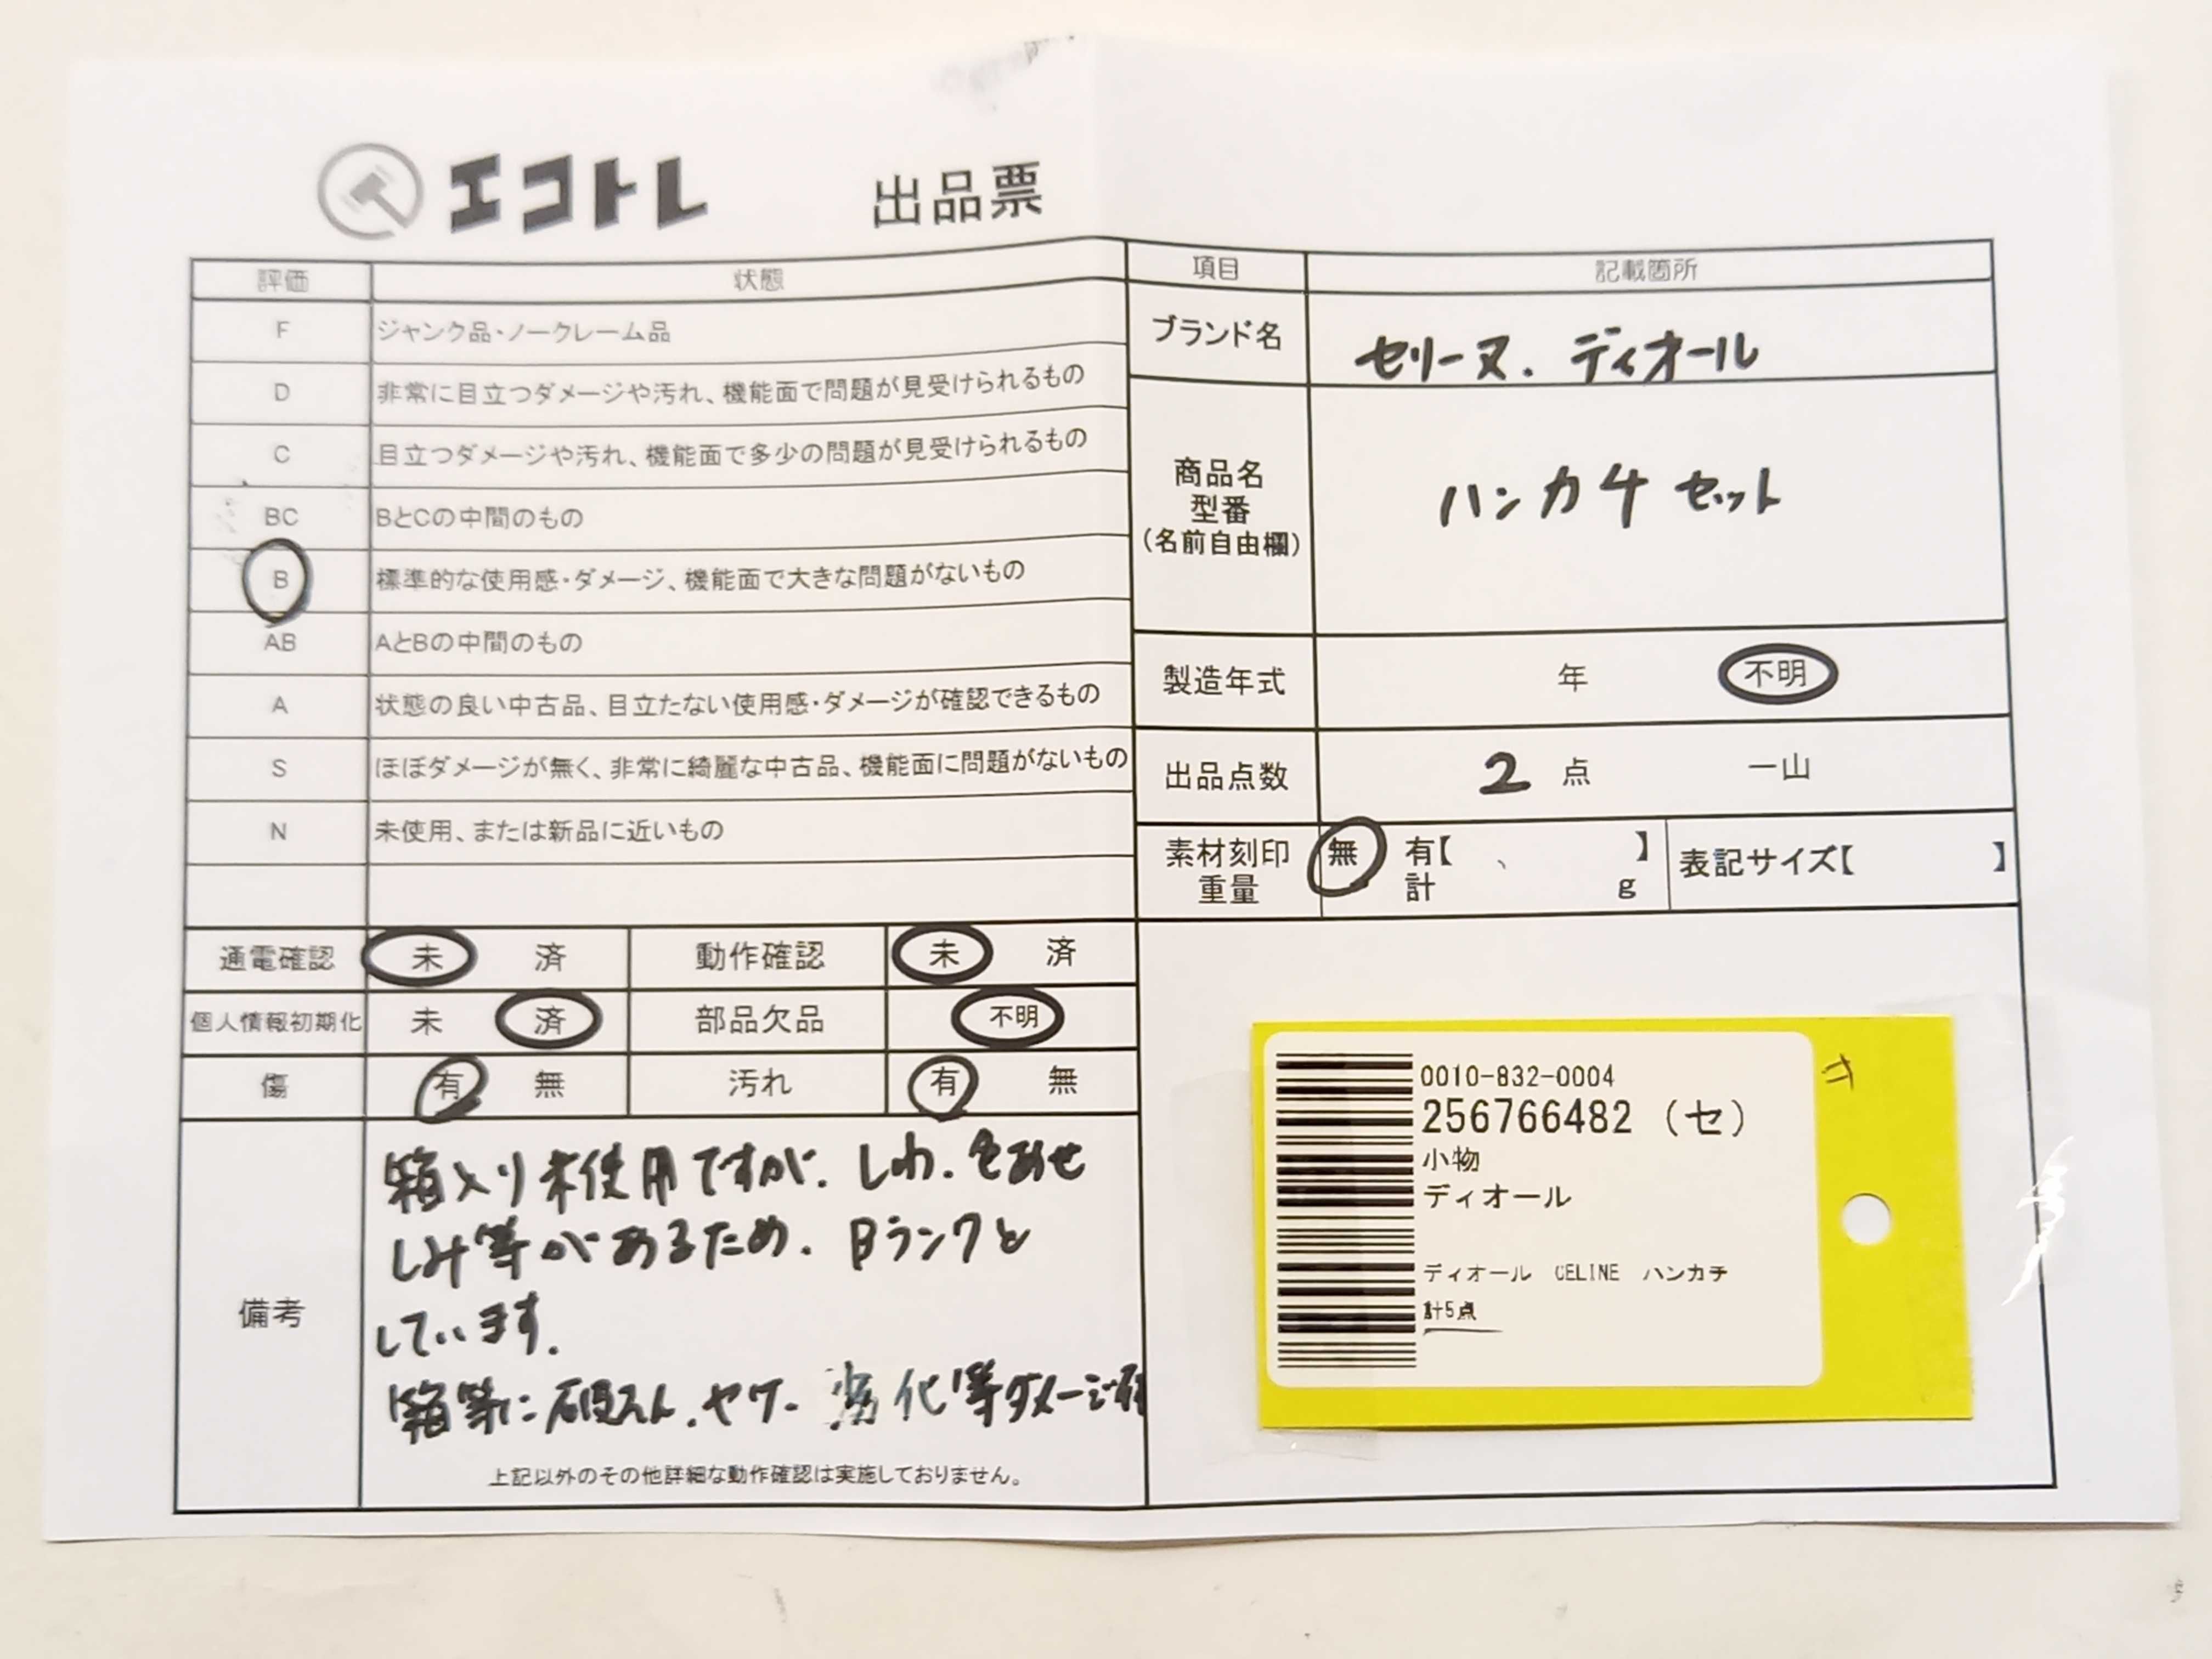 エコトレ 出品票
評価 状態
F ジャンク品・ノークレーム品
D 非常に目立つダメージや汚れ、機能面で問題が見受けられるもの
C 目立つダメージや汚れ、機能面で多少の問題が見受けられるもの
BC BとCの中間のもの
B 標準的な使用感・ダメージ、機能面で大きな問題がないもの
AB AとBの中間のもの
A 状態の良い中古品、目立たない使用感・ダメージが確認できるもの
S ほぼダメージが無く、非常に綺麗な中古品、機能面に問題がないもの
N 未使用、または新品に近いもの
通電確認 未 済 動作確認 未 済
個人情報初期化 未 済 部品欠品 不明
傷 有 無 汚れ 有 無
備考
箱入り未使用ですが、しわ、色あせ
しみ等があるため、Bランクと
しています。
箱等に破えん、ヤケ、劣化等ダメージ有
上記以外のその他詳細な動作確認は実施しておりません。
項目 記載箇所
ブランド名 セリーヌ、ディオール
商品名
型番
(名前自由欄)
ハンカチセット
製造年式 年 不明
出品点数 2 点 一山
素材刻印 無 有【 、 】
重量 計 g
表記サイズ【 】
0010-832-0004
256766482 (セ)
小物
ディオール
ディオール CELINE ハンカチ
計5点